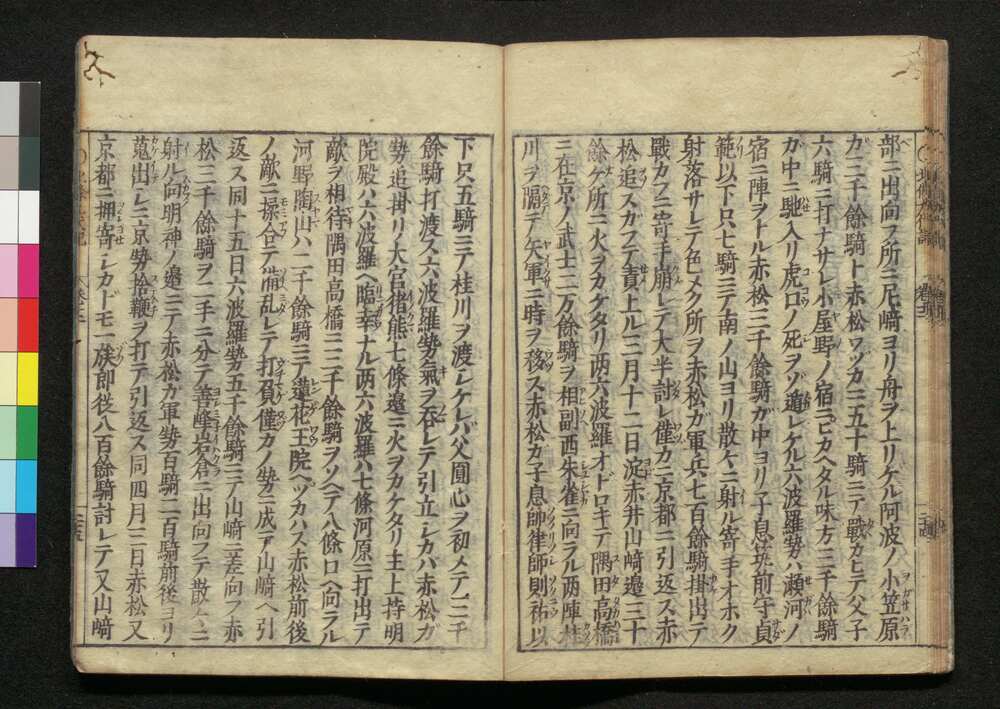 部ニ出向フ所ニ尼﨑ヨリ舟ヲ上リケル阿波ノ小笠原
カ三千餘騎ト赤松ワヅカニ五十騎ニテ戰カヒテ父子
六騎ニ打ナサレ小屋野ノ宿ニヒカヘタル味方三千餘騎
ガ中ニ馳入リ虎口ノ死ヲゾ遁レケル六波羅勢ハ瀬河ノ
宿ニ陣ヲトル赤松三千餘騎ガ中ヨリ子息筑前守貞
範以下只七騎ニテ南ノ山ヨリ散ケニ射ル寄手オホク
射落サレテ色メク所ヲ赤松ガ軍兵七百餘騎掛出テ
戰カフニ寄手崩レテ大半討レ僅カニ京都ニ引返ス赤
松追スカフテ責上ル三月十二日淀赤井山﨑邉三十
餘ケ所ニ火ヲカケタリ两六波羅オドロキテ隅田高橋
ニ在京ノ武士二万餘騎ヲ相副西朱雀ニ向ラル两陣桂
川ヲ隔テ矢軍ニ時ヲ移ス赤松カ子息師律師則祐以
下只五騎ニテ桂川ヲ渡シケレバ父圓心ヲ初メテ三千
餘騎打渡ス六波羅勢氣ヲ呑レテ引立シカバ赤松ガ
勢追掛リ大宮猪熊七條邉ニ火ヲカケタリ主上持明
院殿ハ六波羅ヘ臨幸ナル两六波羅ハ七條河原ニ打出テ
敵ヲ相待隅田高橋ニ三千餘騎ヲソヘテ八條口ヘ向ラル
河野陶山ハ二千餘騎ニテ蓮花王院ヘツカハス赤松前後
ノ敵ニ揉合テ散乱レテ打負僅カノ勢ニ成テ山﨑ヘ引
返ス同十五日六波羅勢五千餘騎ニテ山﨑ニ差向フ赤
松三千餘騎ヲ二手ニ分テ善峰岩倉ニ出向フテ散々ニ
射ル向明神ノ邉ニテ赤松ガ軍勢百騎二百騎前後ヨリ
蒐出シニ京勢捨鞭ヲ打テ引返ス同四月三日赤松又
京都ニ押寄シカドモ一族郎従八百餘騎討レテ又山﨑